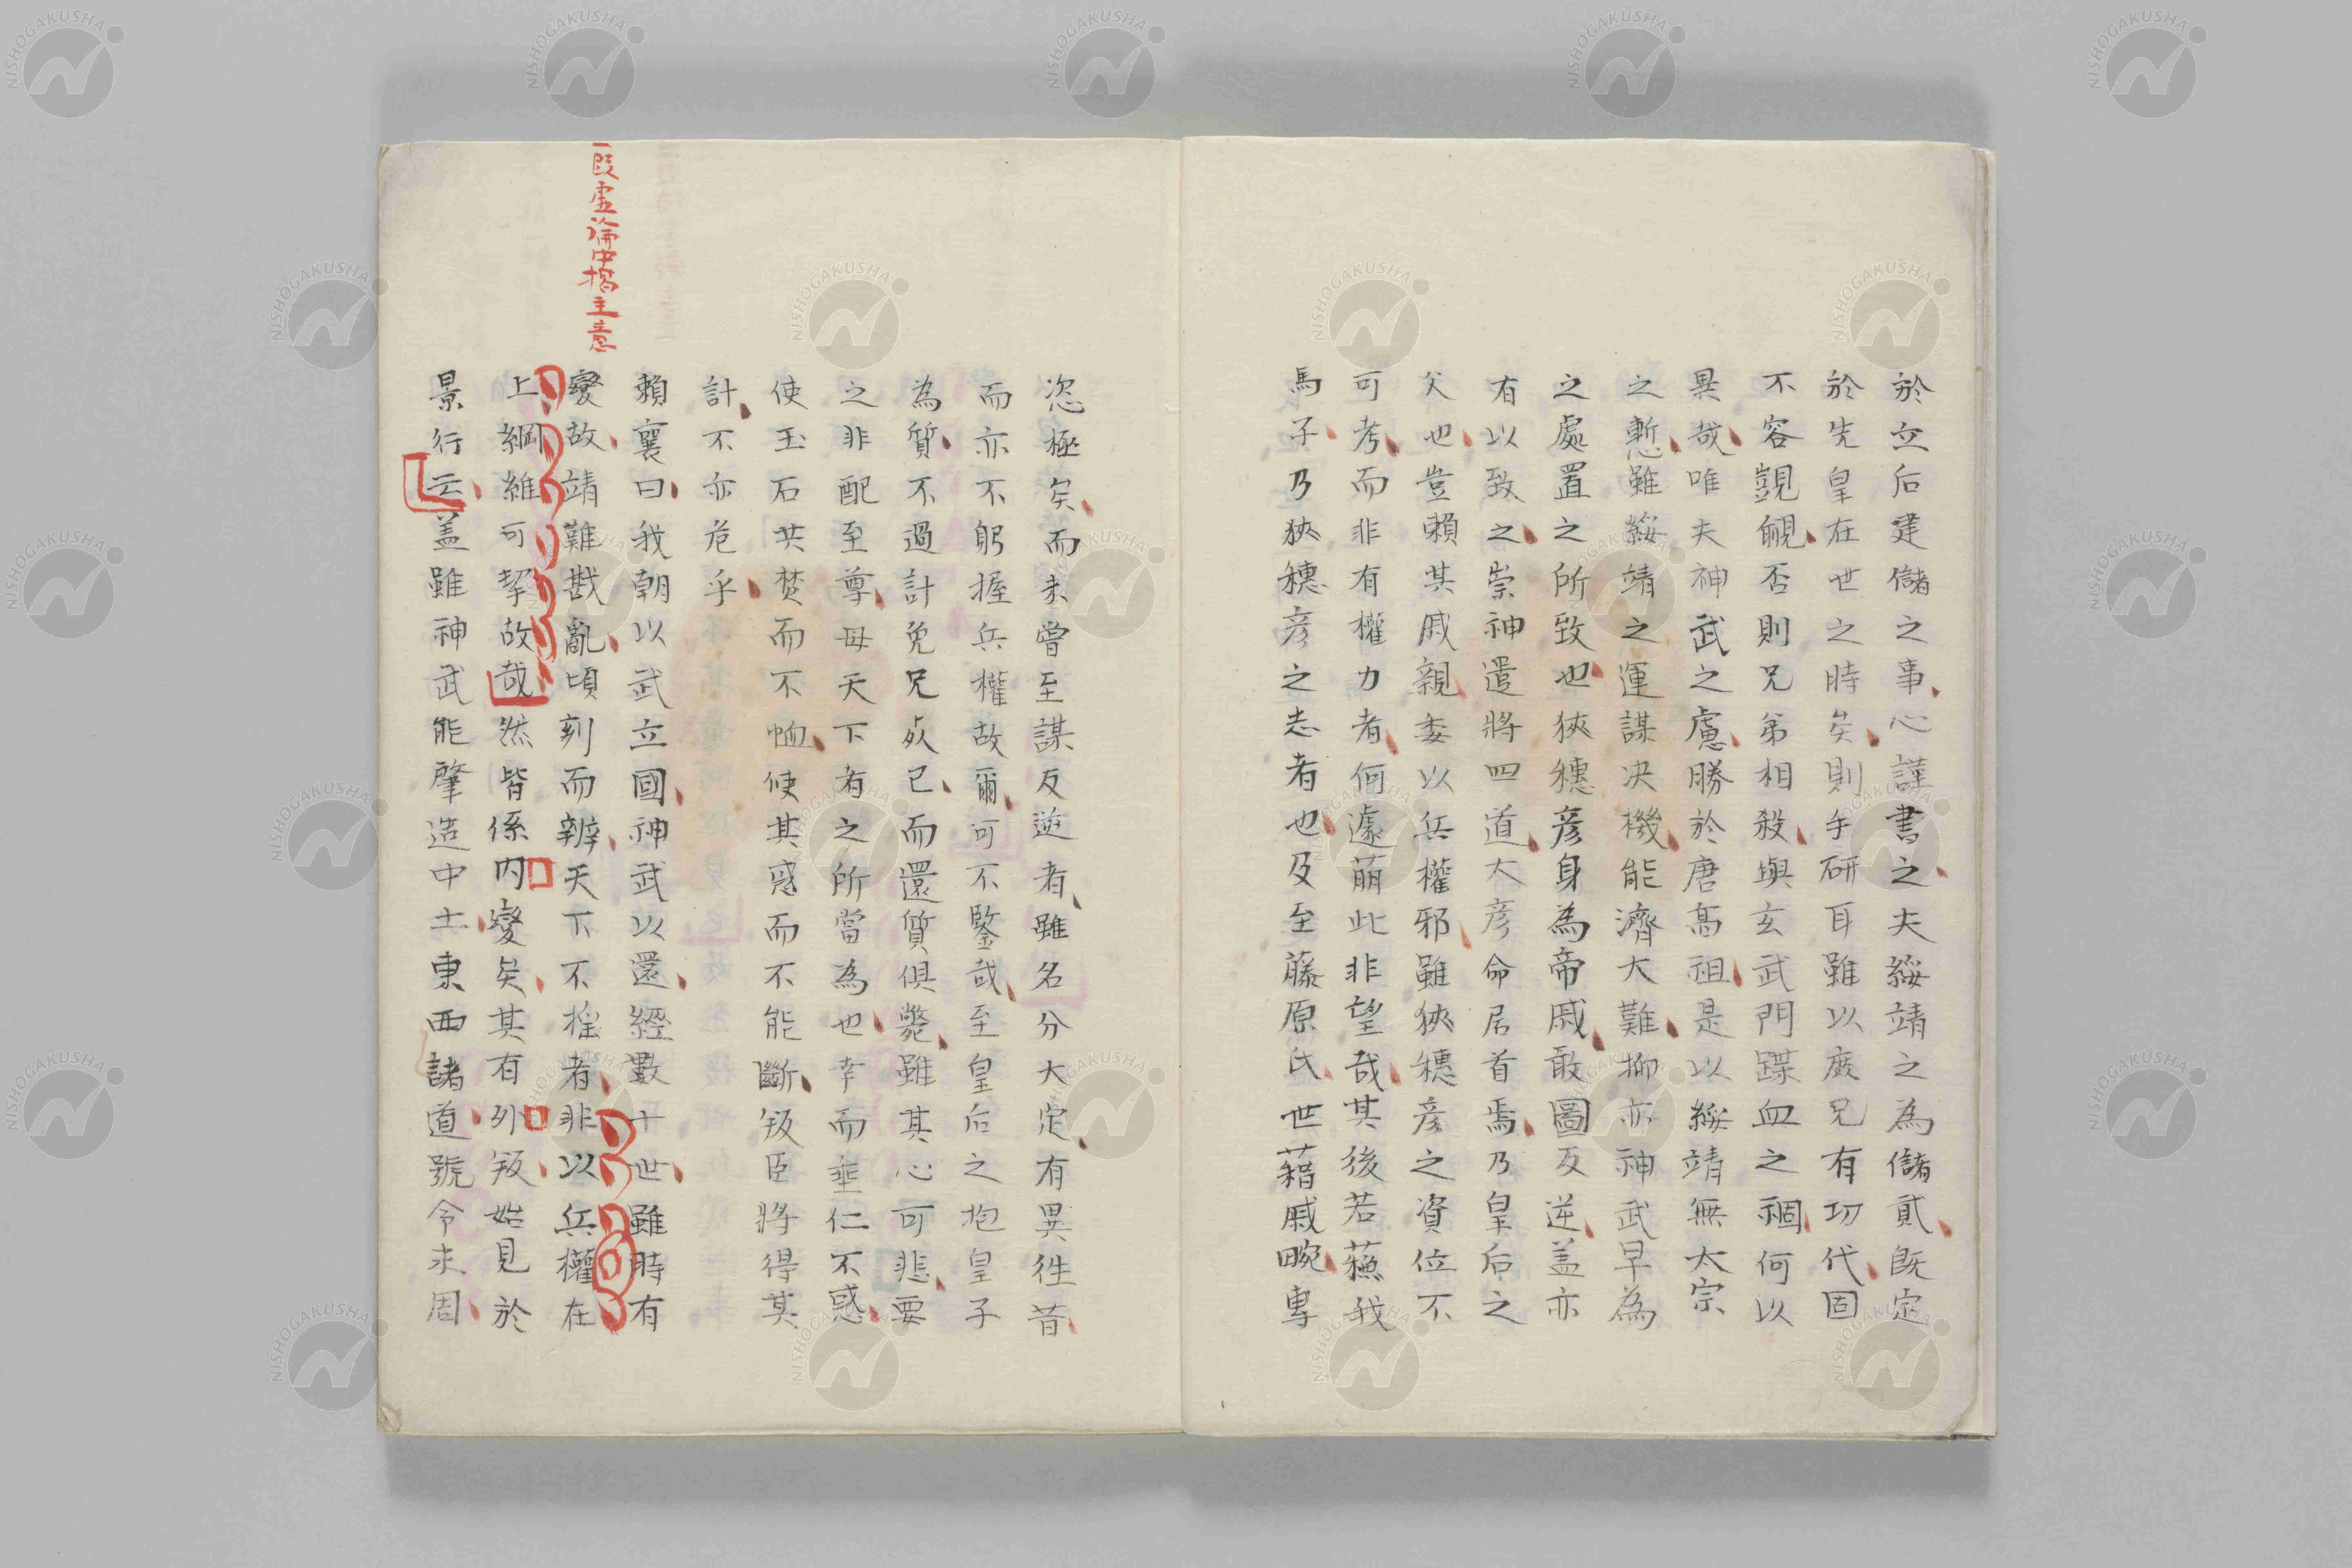 於立后建儲之事心謹書之夫綏靖之為儲貳既定
於先皇在世之時矣則手研耳雖以庶兄有功代固
不容覬覦否則兄弟相殺與玄武門蹀血之禍何以
異哉唯夫神武之慮勝於唐高祖是以綏靖無太宗
之慙雖綏靖之運謀決機能濟大難抑亦神武早為
之處置之所致也狹穗彦身為帝戚敢圖反逆盖亦
有以致之崇神遣將四道大彦命居首焉乃皇后之
父也豈賴其戚親委以兵權邪雖狹穗彦之資位不
可考而非有權力者何遽萠此非望哉其後若蘓我
馬子乃狹穗彦之志者也及至藤原氏世藉戚畹專
恣極矣而未曾至謀反逆者雖名分大定有異徃昔
而亦不躬握兵權故爾可不鑒哉至皇后之抱皇子
為質不過計免兄於已而還質俱斃雖其心可悲要
之非配至尊母天下者之所當為也幸而垂仁不惑
使玉石共焚而不恤使其惑而不能斷叛臣將得其
計不亦危乎
賴襄曰我朝以武立國神武以還經數十世雖時有
變故靖難戡亂頃刻而辨天下不搖者非以兵權在
上綱維可挈故哉然皆係内變矣其有外叛始見於
景行云盖雖神武能肇造中土東西諸道號令未周
一段虚論中揭主意
NISHOGAKUSHA